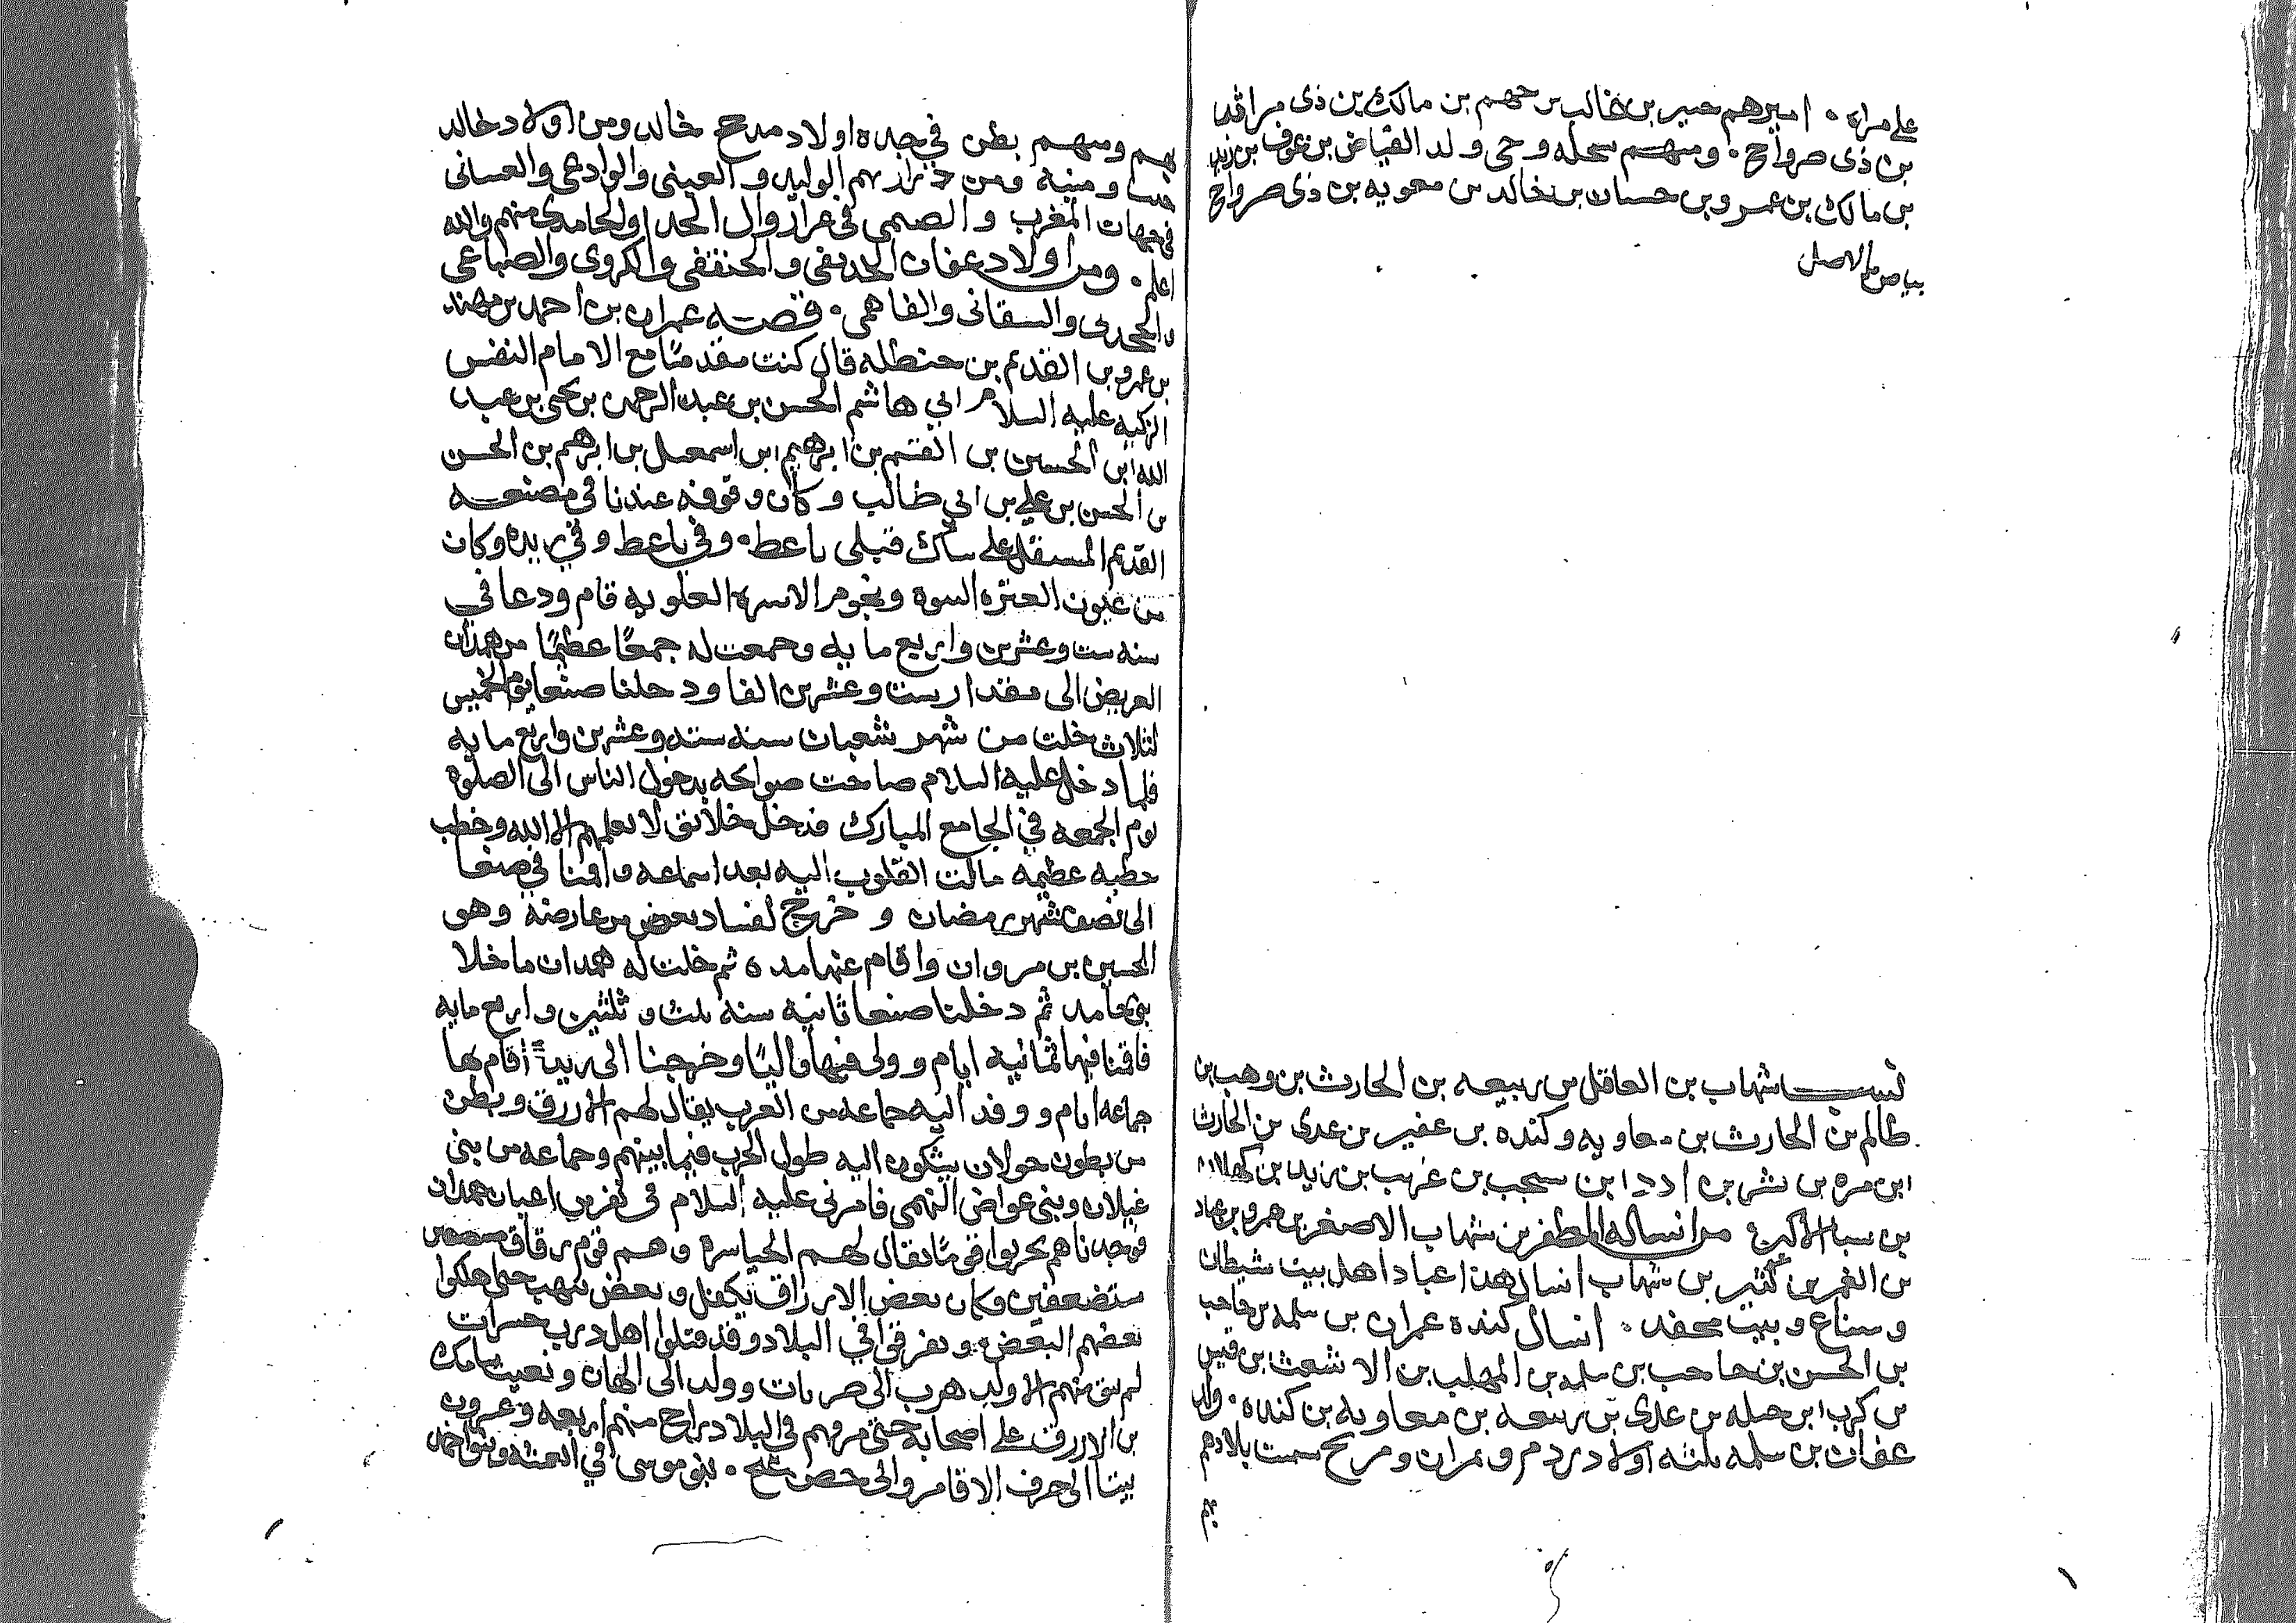 على مراد • اميرهم حمير بن غالب بن جهم بن مالك بن ذى مراثد
بن ذى صرواح • ومنهم سحله وحى ولد الفياض بن عوف بن زيد
بن مالك بن عمرو بن حسان بن خالد بن معويه بن ذى صرواح
بياض في الاصل
نسب شهاب بن العاقل بن ربيعه بن الحارث بن وهب بن
ظالم بن الحارث بن معاويه وكنده بن عفير بن عدى بن الحارث
ابن مره بن نشر بن ادد ابن سحب بن عريب بن زيد بن كهلان
بن سبا الاكبر من انساله المظفر بن شهاب الاصغر بن عمرو بن عباد
بن الغمر بن كثير بن شهاب انسال هذا عباد اهل بيت شيطان
وسناع وبيت محفد • انسال كنده عمران بن سلمه بن حاجب
بن الحسن بن حاجب بن سلمه بن المهلب بن الاشعث بن قيس
بن كرب ابن حبله بن عدى بن ربيعه بن معاويه بن كنده • ولد
عفان بن سلمه ثلثه اولاد ردم وعمران ومريح سميت بلادهم
بهم
بهم ومنهم بطن في جده اولاد مدحج خالد ومن اولاد خالد
ومنبه ومن الوليد والعينى والوادعى والغسانى
في جهات المغرب والصمى في عراز وال الجد والحامدى منهم والله
اعلم • ومن اولاد عفان الحديقى والحنقفى والكروى والصباعى
والسقانى والفاهمى • قصة عمران بن احمد بن مهند
بن عمرو بن القديم بن حنظله قال كنت مقدمًا مع الامام النفس
الزكيه عليه السلام ابي هاشم الحسن بن عبد الرحمن بن يحيى بن عبد
الله ابن الحسين بن القسم بن ابرهيم ابن اسمعيل بن ابرهيم بن الحسن
بن الحسن بن علي بن ابي طالب وكان وقوفه عندنا في مصنعه
القديم المستقل على ساك قبلى ناعط • وفي ناعط وفي ريده وكان
من عيون العتره النبوه ونجوم الاسره العلويه قام ودعا في
سنه ست وعشرين واربع مايه وجمعت له جمعًا عظيمًا من همدان
العريض الى مقدار ست وعشرين الفا ودخلنا صنعا يوم الخميس
لثلاث خلت من شهر شعبان سنه سته وعشرين واربع مايه
فلما دخل عليه السلام صاحت صوايحه بدخول الناس الى الصلوة
يوم الجمعه في الجامع المبارك فدخل خلائق لا يعلمهم الا الله وخطب
خطبه عظيمه مالت القلوب اليه بعد اسماعه واقمنا في صنعا
الى نصف شهر رمضان وخرج لفساد بعض من عارضه وهو
الحسين بن مروان واقام عنها مده ثم خلت له همدان ما خلا
بنى حامد ثم دخلنا صنعا ثانيه سنة ثلث وثلثين واربع مايه
فاقمنا فيها ثمانيه ايام وولى فيها واليًا وخرجنا الى ريدة اقام بها
جماعه ايام ووفد اليه جماعه من العرب يقال لهم الازرق وبطن
من بطون خولان يشكون اليه طول الحرب فيما بينهم وجماعه من بنى
غيلان وبنى عواض النهمى فامرنى عليه السلام في نفر من اعيان همدان
فوجدناهم يحربوا قومًا يقال لهم الحياسره وهم قوم رقاق
مستضعفين وكان بعض الازراق يكفل وبعض ينهب حتى هلكوا
بعضهم البعض • وتفرقوا في البلاد وقد قتلوا اهل درب حسرات
لم يبق منهم الا ولد هرب الى وولد الى الهان
بن الازرق على اصحابه حتى مرقهم في البلاد براح منهم اربعه وعشرون
بيتا الى حرف الاقامر والى حصن • بنو موسى في